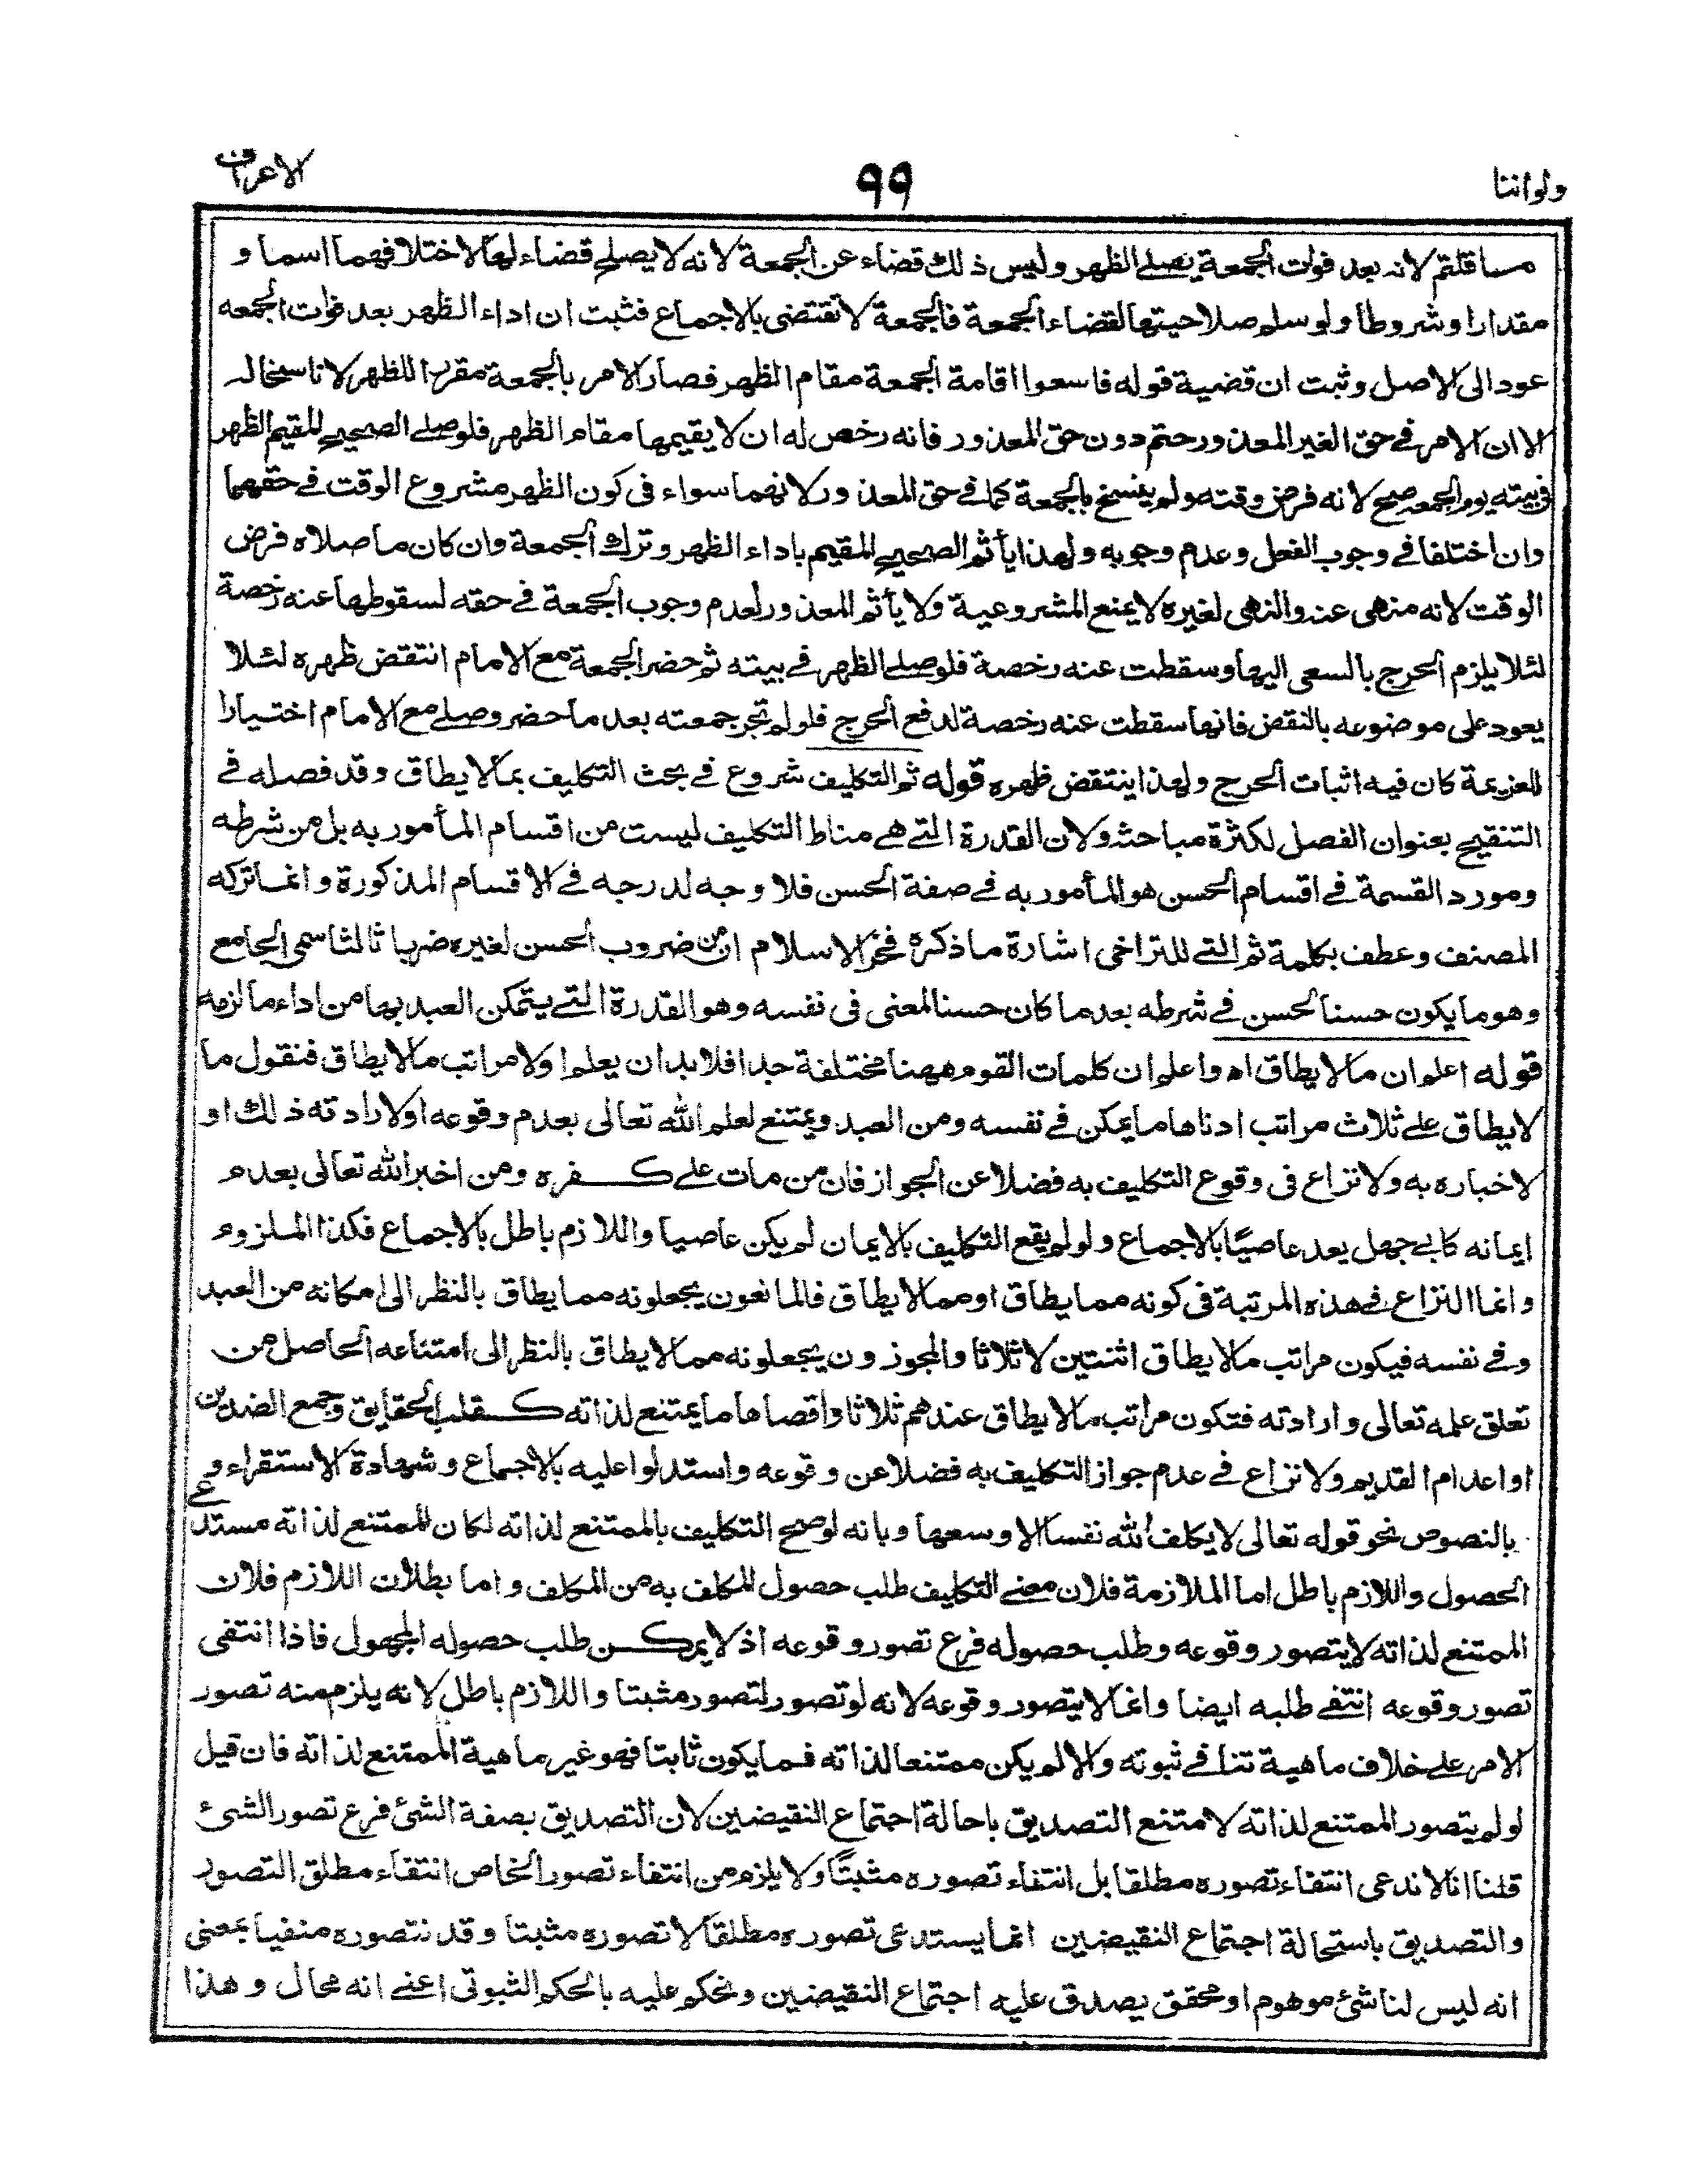 ولواننا ٩٩ الاعراف
مسا قلتم لانه بعد فوات الجمعة يصلى الظهر وليس ذلك قضاء عن الجمعة لانه لا يصلح قضاء لها لاختلافهما اسما و
مقدارا وشروطا ولو سلم صلاحيتها لقضاء الجمعة فالجمعة لا تقتضى بالاجماع فثبت ان اداء الظهر بعد فوات الجمعه
عود الى الاصل وثبت ان قضية قوله فاسعوا اقامة الجمعة مقام الظهر فصار الامر بالجمعة مقررا للظهر لا ناسخا له
الا ان الامر فى حق الغير المعذور حتم دون حق المعذور فانه رخص له ان لا يقيمها مقام الظهر فلو صلى الصحيح المقيم الظهر
فى بيته يوم الجمعه صح لانه فرض وقته ولم ينسخ بالجمعة كما فى حق المعذور لانهما سواء فى كون الظهر مشروع الوقت فى حقهما
وان اختلفا فى وجوب الفعل وعدم وجوبه ولهذا يأثم الصحيح المقيم باداء الظهر وترك الجمعة وان كان ما صلاه فرض
الوقت لانه منهى عنه والنهى لغيره لا يمنع المشروعية ولا يأثم المعذور لعدم وجوب الجمعة فى حقه لسقوطها عنه رخصة
لئلا يلزم الحرج بالسعى اليها وسقطت عنه رخصة فلو صلى الظهر فى بيته ثم حضر الجمعة مع الامام انتقض ظهره لئلا
يعود على موضوعه بالنقض فانها سقطت عنه رخصة لدفع الحرج فلو لم تجز جمعته بعد ما حضر وصلى مع الامام اختيارا
للعزيمة كان فيه اثبات الحرج ولهذا ينتقض ظهره قوله ثم التكليف شروع فى بحث التكليف بما لا يطاق وقد فصله فى
التنقيح بعنوان الفصل لكثرة مباحثه ولان القدرة التى هى مناط التكليف ليست من اقسام المأمور به بل من شرطه
ومورد القسمة فى اقسام الحسن هو المأمور به فى صفة الحسن فلا وجه لدرجه فى الاقسام المذكورة وانما تركه
المصنف وعطف بكلمة ثم التى للتراخى اشارة ما ذكره فخر الاسلام ان من ضروب الحسن لغيره ضربا ثالثا سمى الجامع
وهو ما يكون حسنا لحسن فى شرطه بعد ما كان حسنا لمعنى فى نفسه وهو القدرة التى يتمكن العبد بها من اداء ما لزمه
قوله اعلم ان ما لا يطاق اه واعلم ان كلمات القوم ههنا مختلفة جدا فلا بد ان يعلم اولا مراتب ما لا يطاق فنقول ما
لا يطاق على ثلاث مراتب ادناها ما يمكن فى نفسه ومن العبد ويمتنع لعلم الله تعالى بعدم وقوعه او لارادته ذلك او
لاخباره به ولا نزاع فى وقوع التكليف به فضلا عن الجواز فان من مات على كفره ومن اخبر الله تعالى بعدم
ايمانه كابى جهل يعد عاصيًا بالاجماع ولو لم يقع التكليف بالايمان لم يكن عاصيا واللازم باطل بالاجماع فكذا الملزوم
وانما النزاع فى هذه المرتبة فى كونه مما يطاق او مما لا يطاق فالمانعون يجعلونه مما يطاق بالنظر الى امكانه من العبد
وفى نفسه فيكون مراتب ما لا يطاق اثنتين لا ثلاثا والمجوزون يجعلونه مما لا يطاق بالنظر الى امتناعه الحاصل من
تعلق علمه تعالى وارادته فتكون مراتب ما لا يطاق عندهم ثلاثا واقصاها ما يمتنع لذاته كقلب الحقايق وجمع الضدين
او اعدام القديم ولا نزاع فى عدم جواز التكليف به فضلا عن وقوعه واستدلوا عليه بالاجماع وشهادة الاستقراء و
بالنصوص نحو قوله تعالى لا يكلف الله نفسا الا وسعها وبانه لو صح التكليف بالممتنع لذاته لكان الممتنع لذاته مستدعى
الحصول واللازم باطل اما الملازمة فلان معنى التكليف طلب حصول المكلف به من المكلف واما بطلان اللازم فلان
الممتنع لذاته لا يتصور وقوعه وطلب حصوله فرع تصور وقوعه اذ لا يمكن طلب حصوله المجهول فاذا انتفى
تصور وقوعه انتفى طلبه ايضا وانما لا يتصور وقوعه لانه لو تصور لتصور مثبتا واللازم باطل لانه يلزم منه تصور
الامر على خلاف ماهية تنافى ثبوته والا لم يكن ممتنعا لذاته فما يكون ثابتا فهو غير ماهية الممتنع لذاته فان قيل
لو لم يتصور الممتنع لذاته لامتنع التصديق باحالة اجتماع النقيضين لان التصديق بصفة الشئ فرع تصور الشئ
قلنا انا لا ندعى انتفاء تصوره مطلقا بل انتفاء تصوره مثبتًا ولا يلزم من انتفاء تصور الخاص انتفاء مطلق التصور
والتصديق باستحالة اجتماع النقيضين انما يستدعى تصوره مطلقا لا تصوره مثبتا وقد نتصوره منفيا بمعنى
انه ليس لنا شئ موهوم او محقق يصدق عليه اجتماع النقيضين ونحكم عليه بالحكم الثبوتى اعنى انه محال وهذا